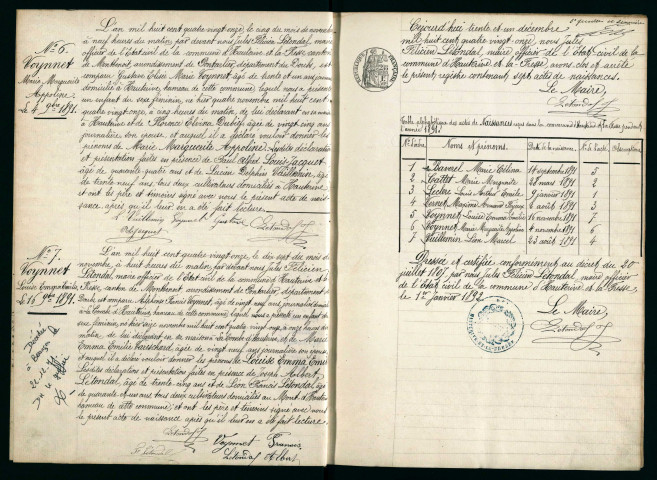 N° 6.
Voynnet
Marie, Marguerite
Appoline
Le 4 9bre 1891.
L'an mil huit cent quatre-vingt onze, le cinq du mois de novembre
à neuf heures du matin, par devant nous Jules Félicien Létondal, maire
officier de l'Etat civil de la commune d'Hautraine et la Fresse, canton
de Montbenoit, arrondissement de Pontarlier, département du Doubs, est
comparu Gustave Elisée Marie Voynnet âgé de trente et un ans journalier
domicilié à Hautraine, hameau de cette commune, lequel nous a présenté
un enfant du sexe féminin, né hier quatre novembre mil huit cent
quatre vingt onze, à cinq heures du matin, de lui déclarant en sa maison
à Hautraine et de Florence Elvina Dubief âgée de vingt cinq ans
journalière son épouse et auquel il a déclaré vouloir donner les
prénoms de Marie Marguerite Appoline. Lesdites déclaration
et présentation faites en présence de Paul Alfred Louis Jacquet
âgé de quarante quatre ans et de Lucien Delphin Vuillemin, âgé
de trente neuf ans, tous deux cultivateurs domiciliés à Hautraine
et ont les père et témoins signé avec nous le présent acte de nais-
sance après qu'il leur en a été fait lecture.
L. Vuillemin Voynnet Gustave Létondal
N° 7.
Voynnet
Louise Emma Emilie
Le 16 9bre 1891.
L'an mil huit cent quatre vingt onze, le dix sept du mois de
novembre, à huit heures du matin, par devant nous Jules Félicien
Létondal, maire officier de l'Etat civil de la commune d'Hautraine et la
Fresse, canton de Montbenoit arrondissement de Pontarlier, département du
Doubs est comparu Alphonse Francis Voynnet, âgé de vingt neuf ans, journalier domicilié
à la Combe d'Hautraine, hameau de cette commune, lequel nous a présenté un enfant du
sexe féminin, né hier seize novembre mil huit cent quatre vingt onze, à onze heures du
matin, de lui déclarant en sa maison à la Combe d'Hautraine et de Marie
Emma Emilie Querrchard, âgée de vingt neuf ans, journalière son épouse,
et auquel il a déclaré vouloir donner les prénoms de Louise Emma Emilie
Lesdites déclaration et présentation faites en présence de Joseph Albert
Létondal, âgé de trente cinq ans et de Léon Létondal, âgé
de quarante et un ans tous deux cultivateurs domiciliés au Mont d'Hautraine
hameau de cette commune, et ont les père et témoins signé avec nous
le présent acte de naissance après qu'il leur en a été fait lecture.
Létondal
Voynnet Francis
Létondal Albert
Cejourd'hui trente et un décembre
mil huit cent quatre vingt onze, nous Jules
Félicien Létondal, maire officier de l'Etat civil de la
commune d'Hautraine et la Fresse, avons clos et arrêté
le présent registre contenant sept actes de naissances.
Le Maire,
Létondal
Table alphabétique des actes de Naissance reçus dans la commune d'Hautraine et la Fresse pendant
l'année 1891.
N° d'ordre Noms et prénoms. Date de la naissance. N° de l'acte Observations
1 Baverel Marie Célina 14 septembre 1891 5
2 Cattet Marie Marguerite 28 mars 1891 2
3 Leclerc Louis Arthur Emile 9 janvier 1891 1
4 6 août 1891 3
5 Voynnet Louise Emma Emilie 16 novembre 1891 7
6 Voynnet Marie Marguerite Appoline 4 novembre 1891 6
7 Vuillemin Léon Marcel 23 août 1891 4
Dressé et certifié conformément au décret du 20
juillet 1807, par nous Jules Félicien Létondal, maire officier
de l'Etat civil de la commune d'Hautraine et la Fresse,
le 1er janvier 1892.
Le Maire,
Létondal